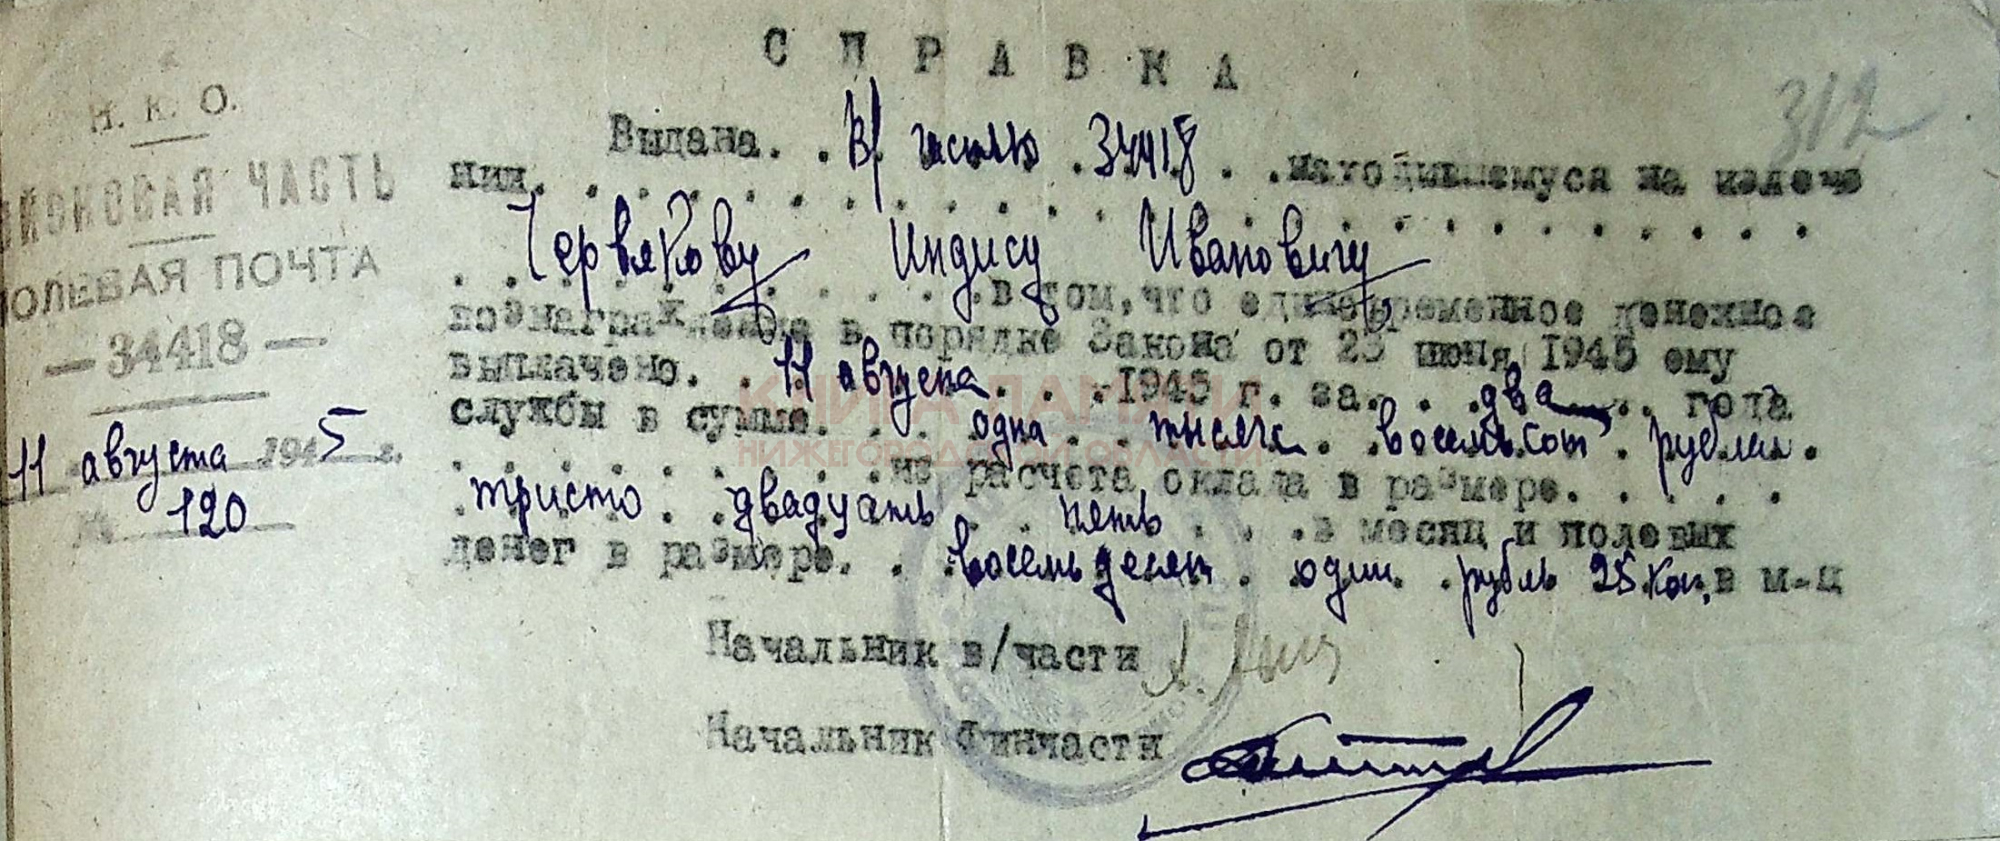 СПРАВКА
312
Н. К. О.
ВОЙСКОВАЯ ЧАСТЬ
ПОЛЕВАЯ ПОЧТА
— 34418 —
11 августа 1945 г.
№ 120
Выдана. . В/ частью . 34418 . . находившемуся на излече
нии. . . . . . . . . . . . . . . . . . . . . . . . .
Червякову Индису Ивановичу
. . . . . . . . . . . . в том, что единовременное денежное
вознаграждение в порядке Закона от 23 июня 1945 ему
выплачено. . 11 августа . . . 1945 г. за. . два . . года
службы в сумме. . . одна . . тысяча . восемьсот . рублей .
. . . . . . . . . из расчета оклада в размере. . . . .
. тристо двадцать . . пять . . . . в месяц и полевых
денег в размере. . восемьдесят . один . рубль 25 коп. в м-ц
Начальник в/части
Начальник Финчасти
КНИГА ПАМЯТИ
НИЖЕГОРОДСКОЙ ОБЛАСТИ